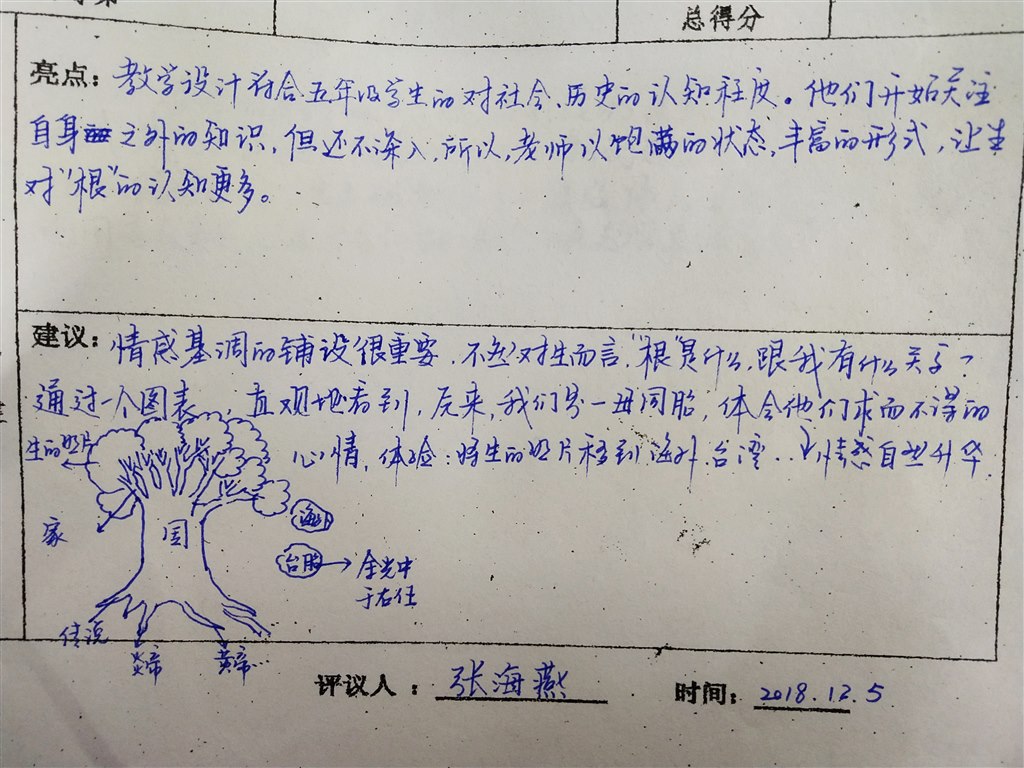 总得分
亮点：教学设计符合五年级学生的对社会、历史的认知程度。他们开始关注
自身之外的知识，但还不深入，所以，老师以饱满的状态，丰富的形式，让生
对“根”的认知更多。
建议：情感基调的铺设很重要，不然对生而言，“根”是什么，跟我有什么关系？
通过一个图表，直观地看到，原来，我们是一母同胞，体会他们求而不得的
心情，体验：将生的照片移到海外、台湾...情感自然升华.
生的照片
家
国
海外
台胞
余光中
于右任
传说
炎帝
黄帝...
评议人：张海燕
时间：2018.12.5